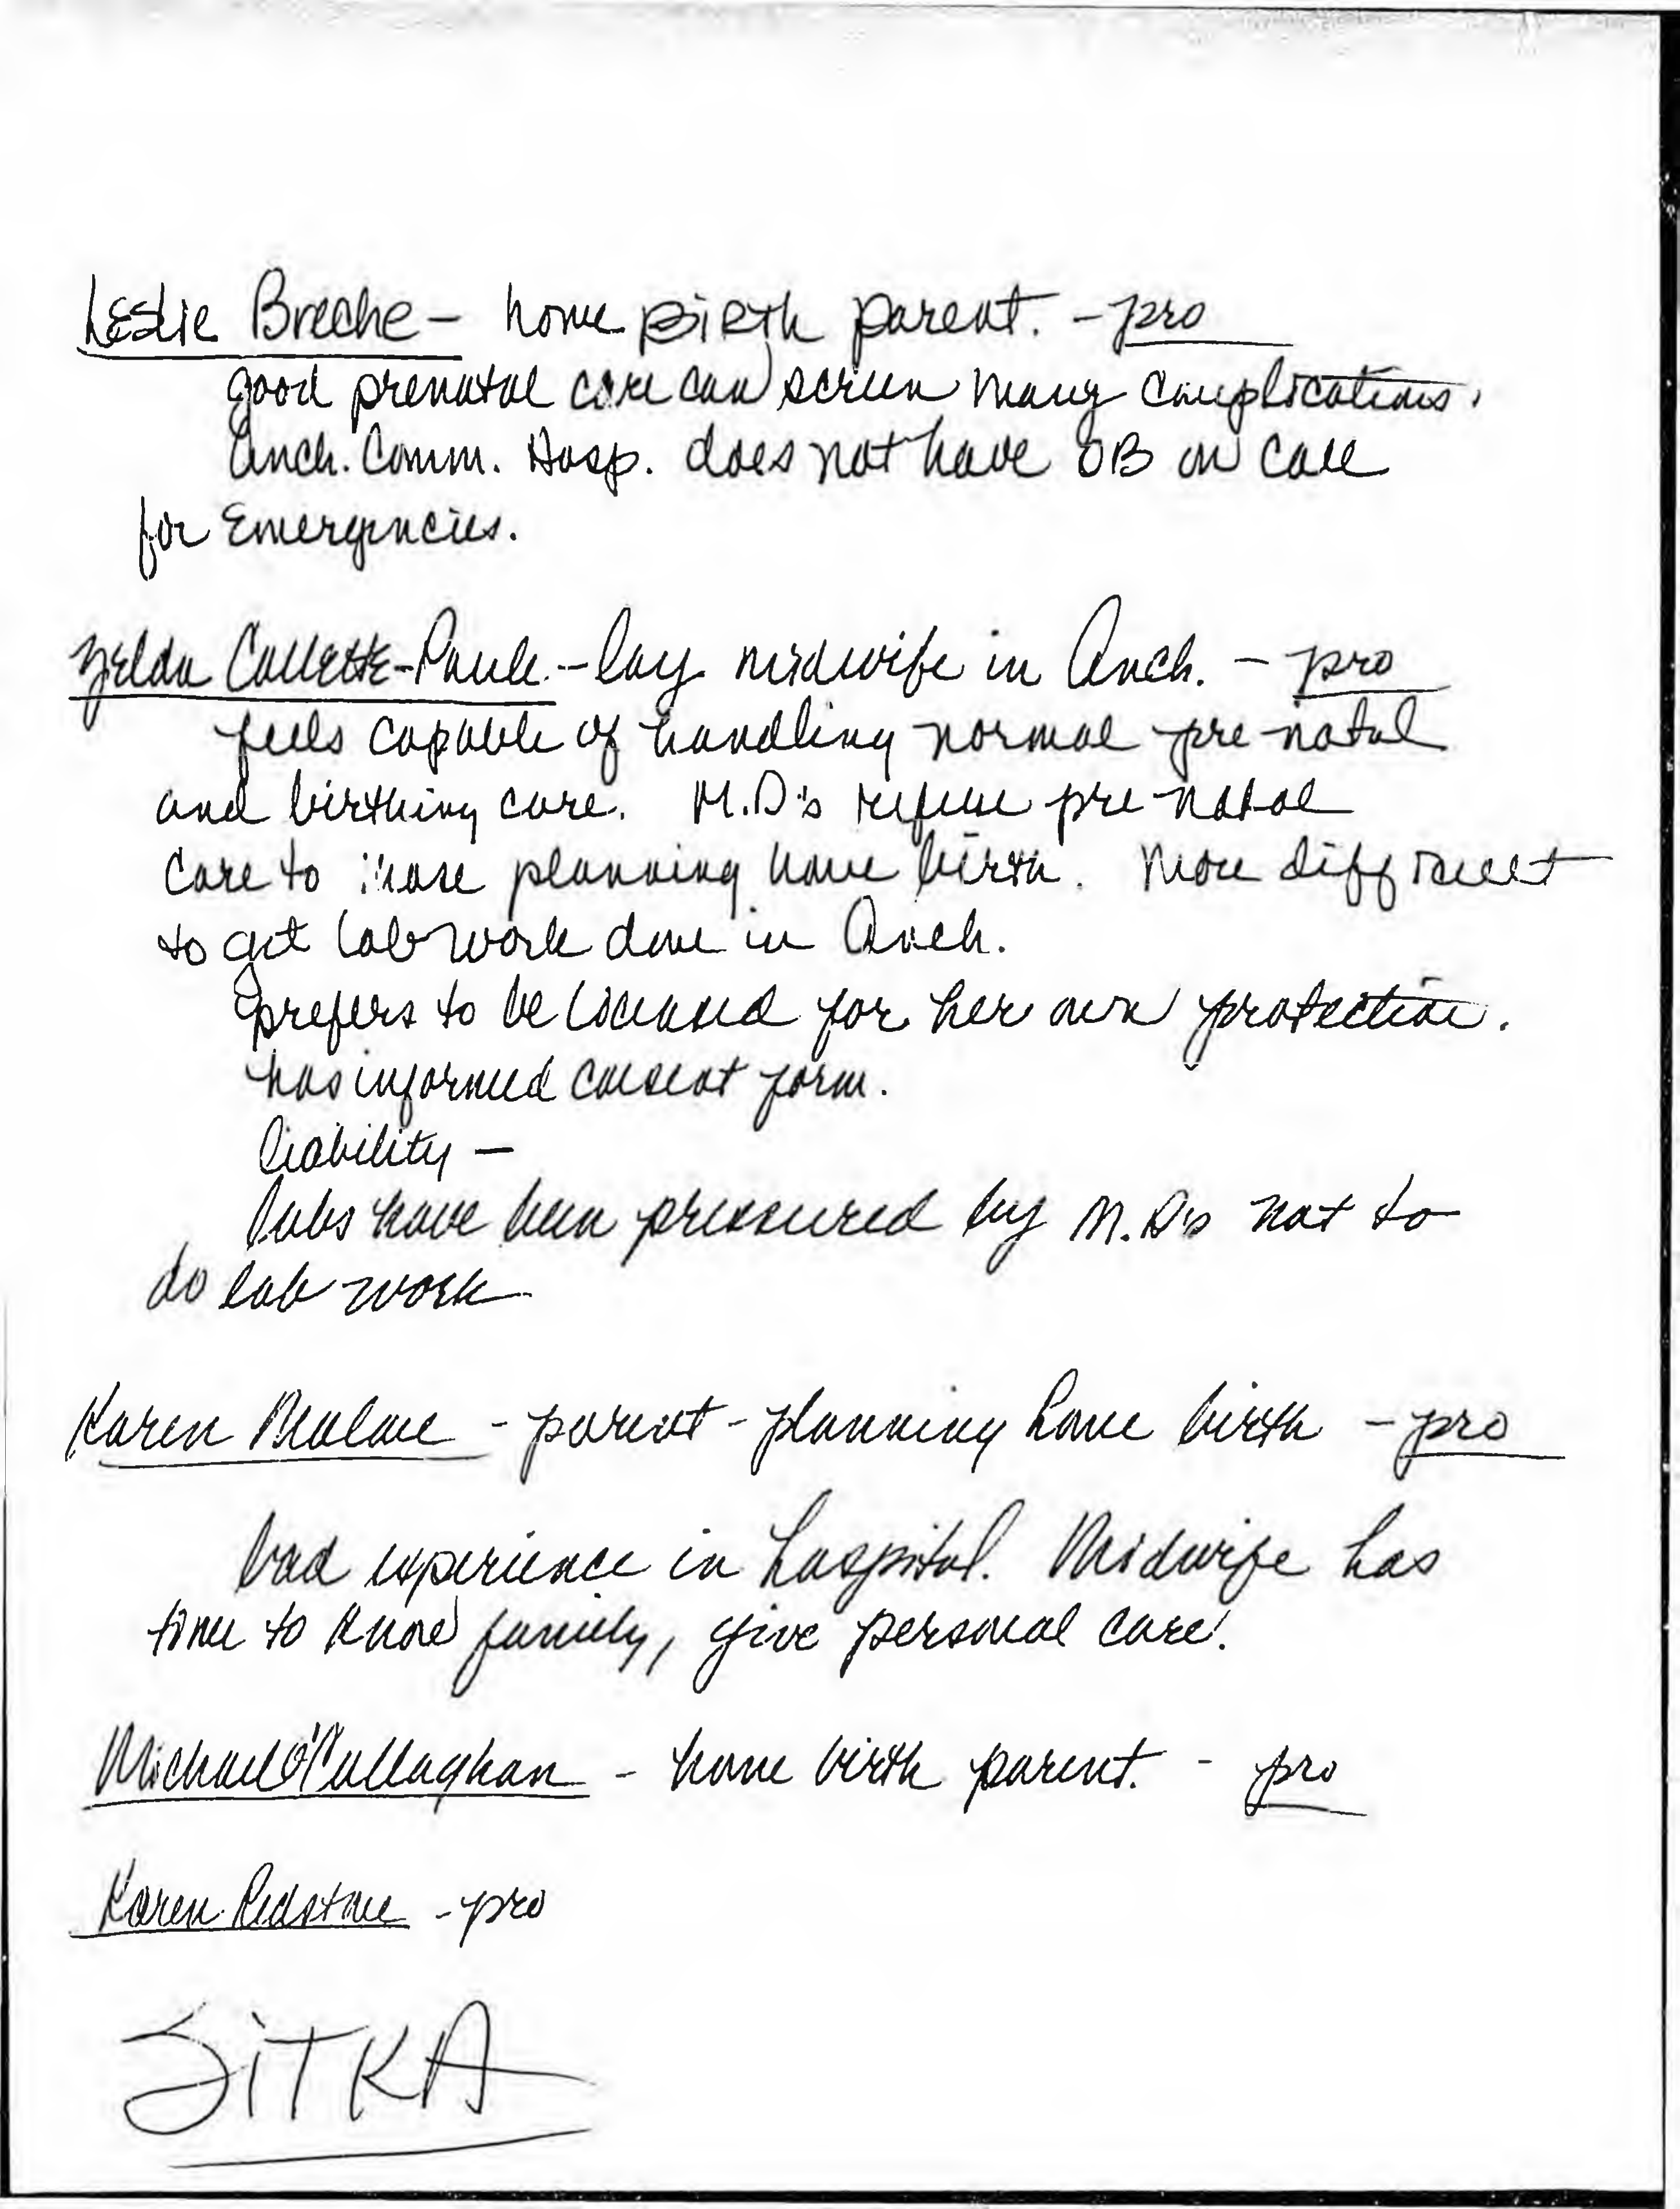 Leslie Breche - home Birth parent. - pro
good prenatal care can screen many complications.
Anch. Comm. Hosp. does not have OB on call
for Emergencies.
Zelda Collette-Paule - lay midwife in Anch. - pro
feels capable of handling normal pre-natal
and birthing care. M.D's refuse pre-natal
care to those planning home birth. More difficult
to get lab work done in Anch.
prefers to be licensed for her own protection.
has informed consent form.
liability -
labs have been pressured by M.D's not to
do lab work
Karen - parent - planning home birth - pro
bad experience in hospital. Midwife has
time to know family, give personal care.
Michael O'Callaghan - home birth parent. - pro
Karen Redstone - pro
SITKA